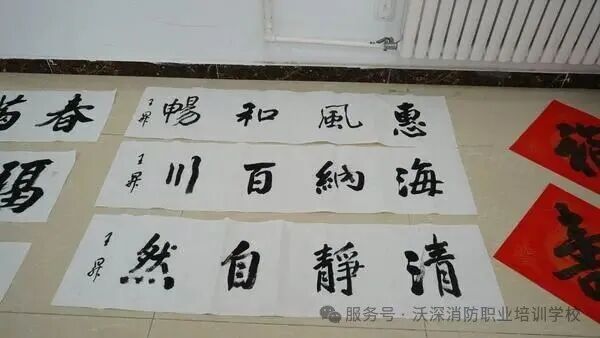 惠風和暢
海納百川
清靜自然
春
福
服务号 · 沃深消防职业培训学校